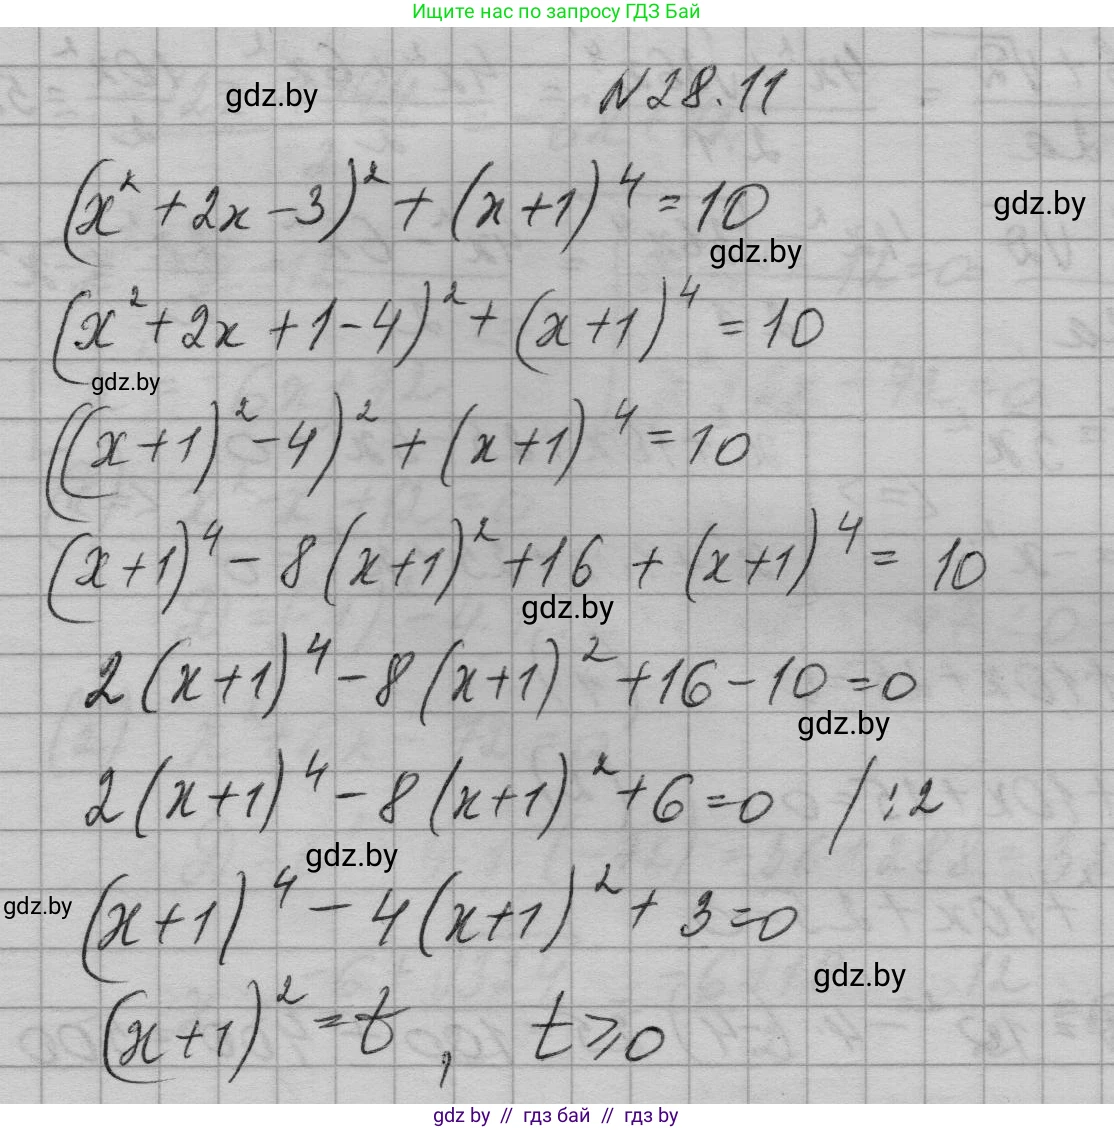 Ищите нас по запросу ГДЗ Бай
gdz.by
N28.11
(x² + 2x - 3)² + (x + 1)⁴ = 10
gdz.by
gdz.by
(x² + 2x + 1 - 4)² + (x + 1)⁴ = 10
gdz.by
((x + 1)² - 4)² + (x + 1)⁴ = 10
(x + 1)⁴ - 8(x + 1)² + 16 + (x + 1)⁴ = 10
gdz.by
2(x + 1)⁴ - 8(x + 1)² + 16 - 10 = 0
gdz.by
2(x + 1)⁴ - 8(x + 1)² + 6 = 0 /:2
gdz.by
gdz.by
(x + 1)⁴ - 4(x + 1)² + 3 = 0
gdz.by
(x + 1)² = t, t ⩾ 0
gdz by // гдз бай // гдз by